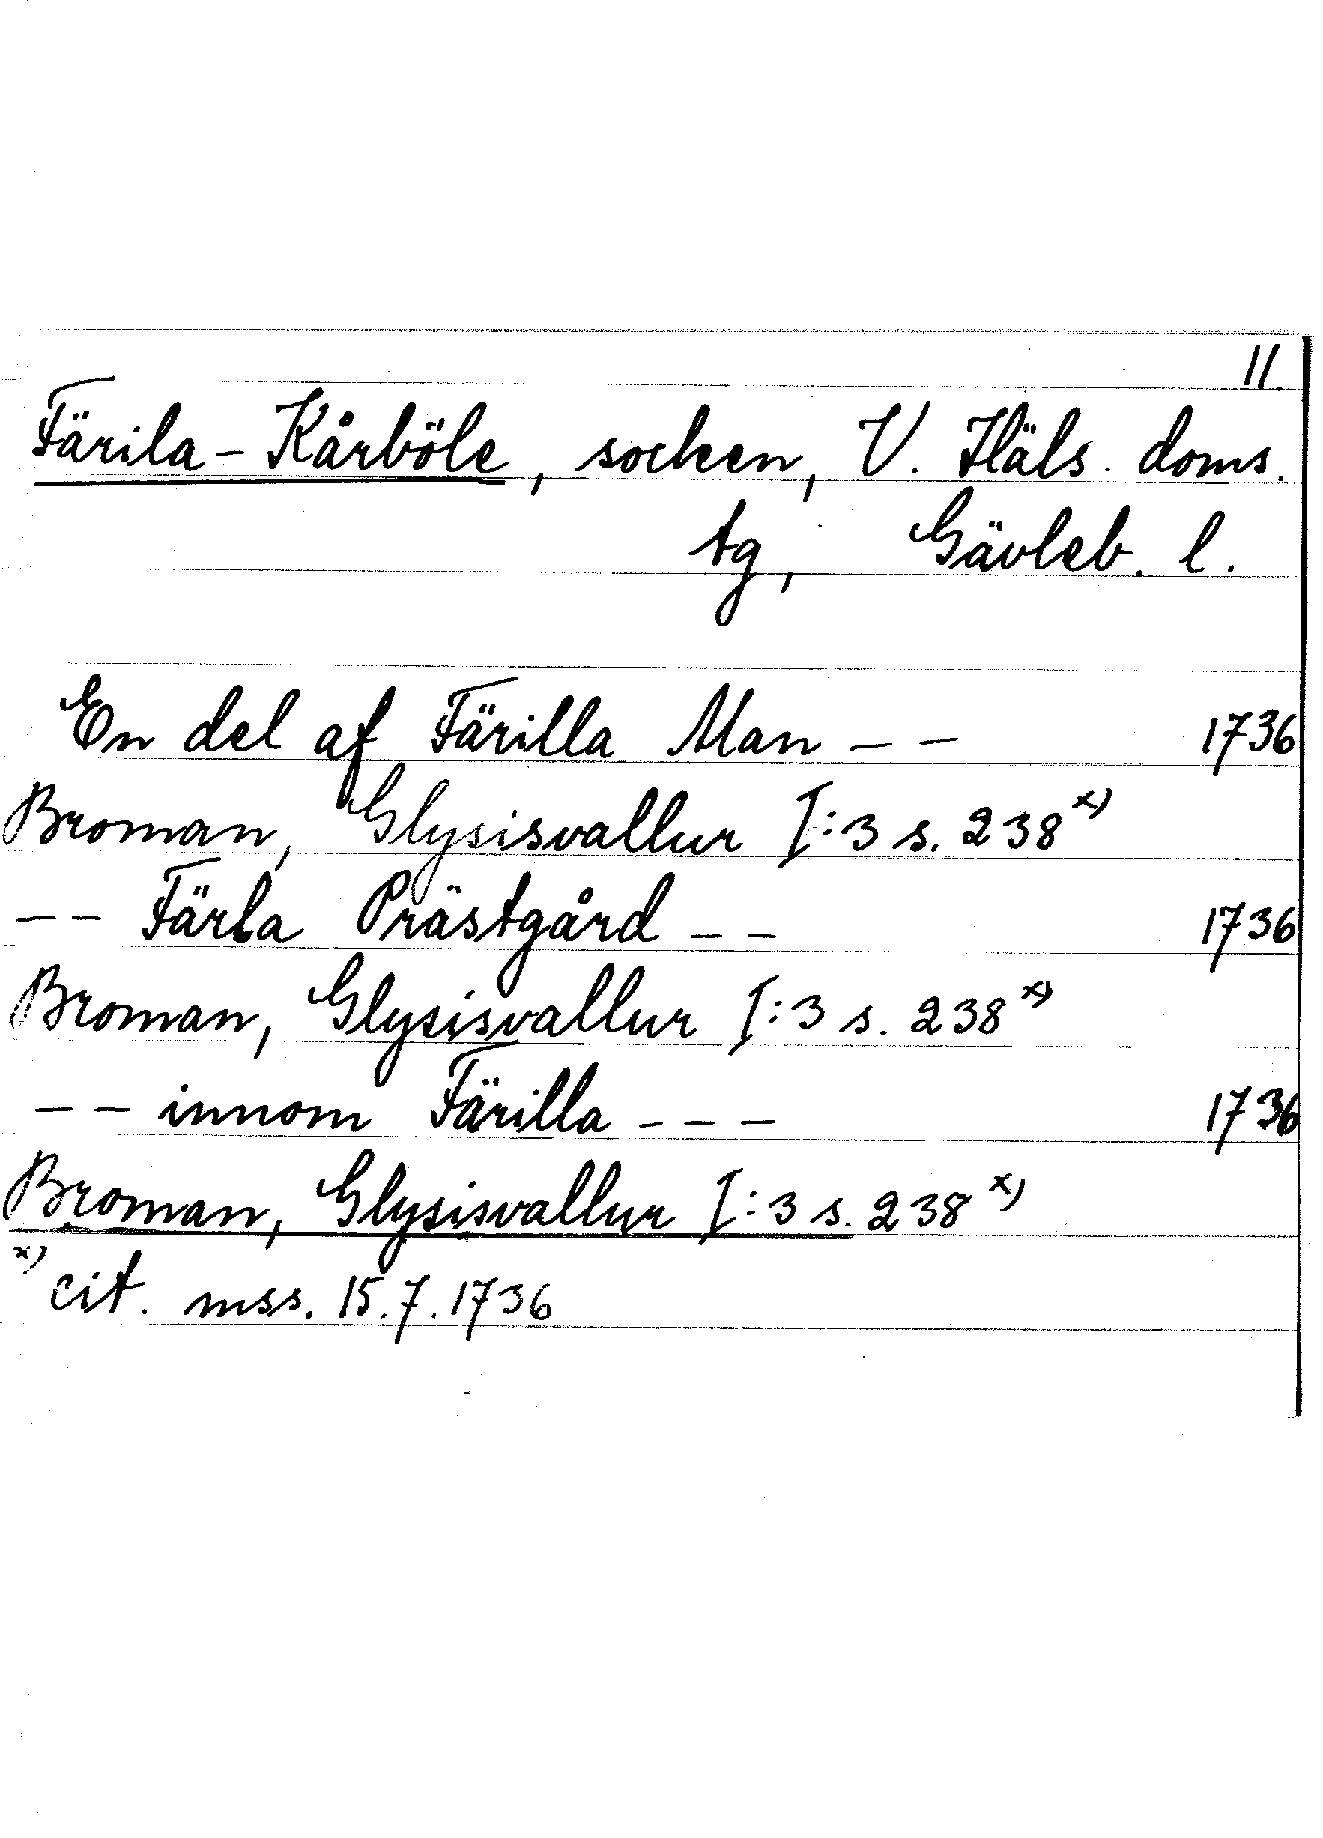 11.
Färila-Kårböle, socken, V. Häls. doms.
tg, Gävleb. l.
En del af Färilla Man - - 1736
Broman, Glysisvallur I:3 s. 238 x)
- - Färla Prästgård - - 1736
Broman, Glysisvallur I:3 s. 238 x)
- - innom Färilla - - - 1736
Broman, Glysisvallur I:3 s. 238 x)
x) cit. mss. 15.7.1736